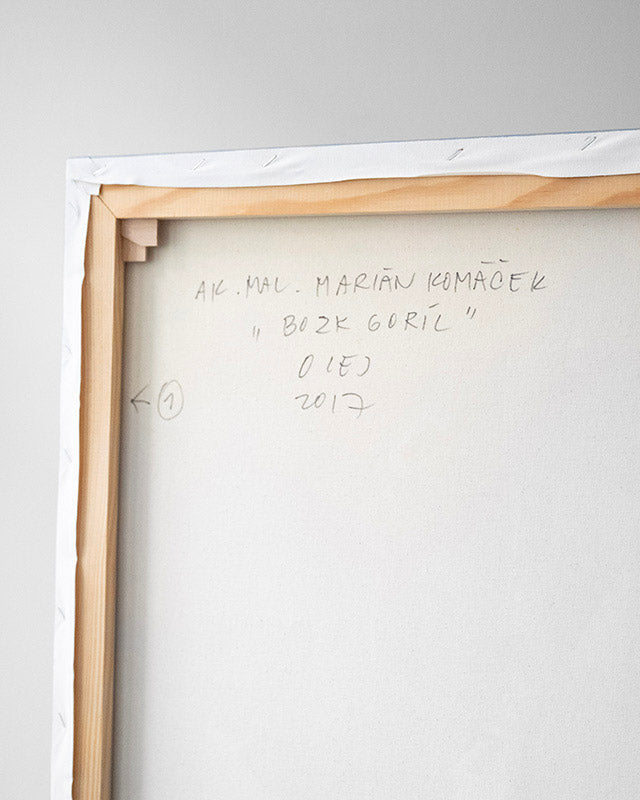 AK. MAL. MARIÁN KOMÁČEK
„ BOZK GORÍL "
OLEJ
← 1
2017